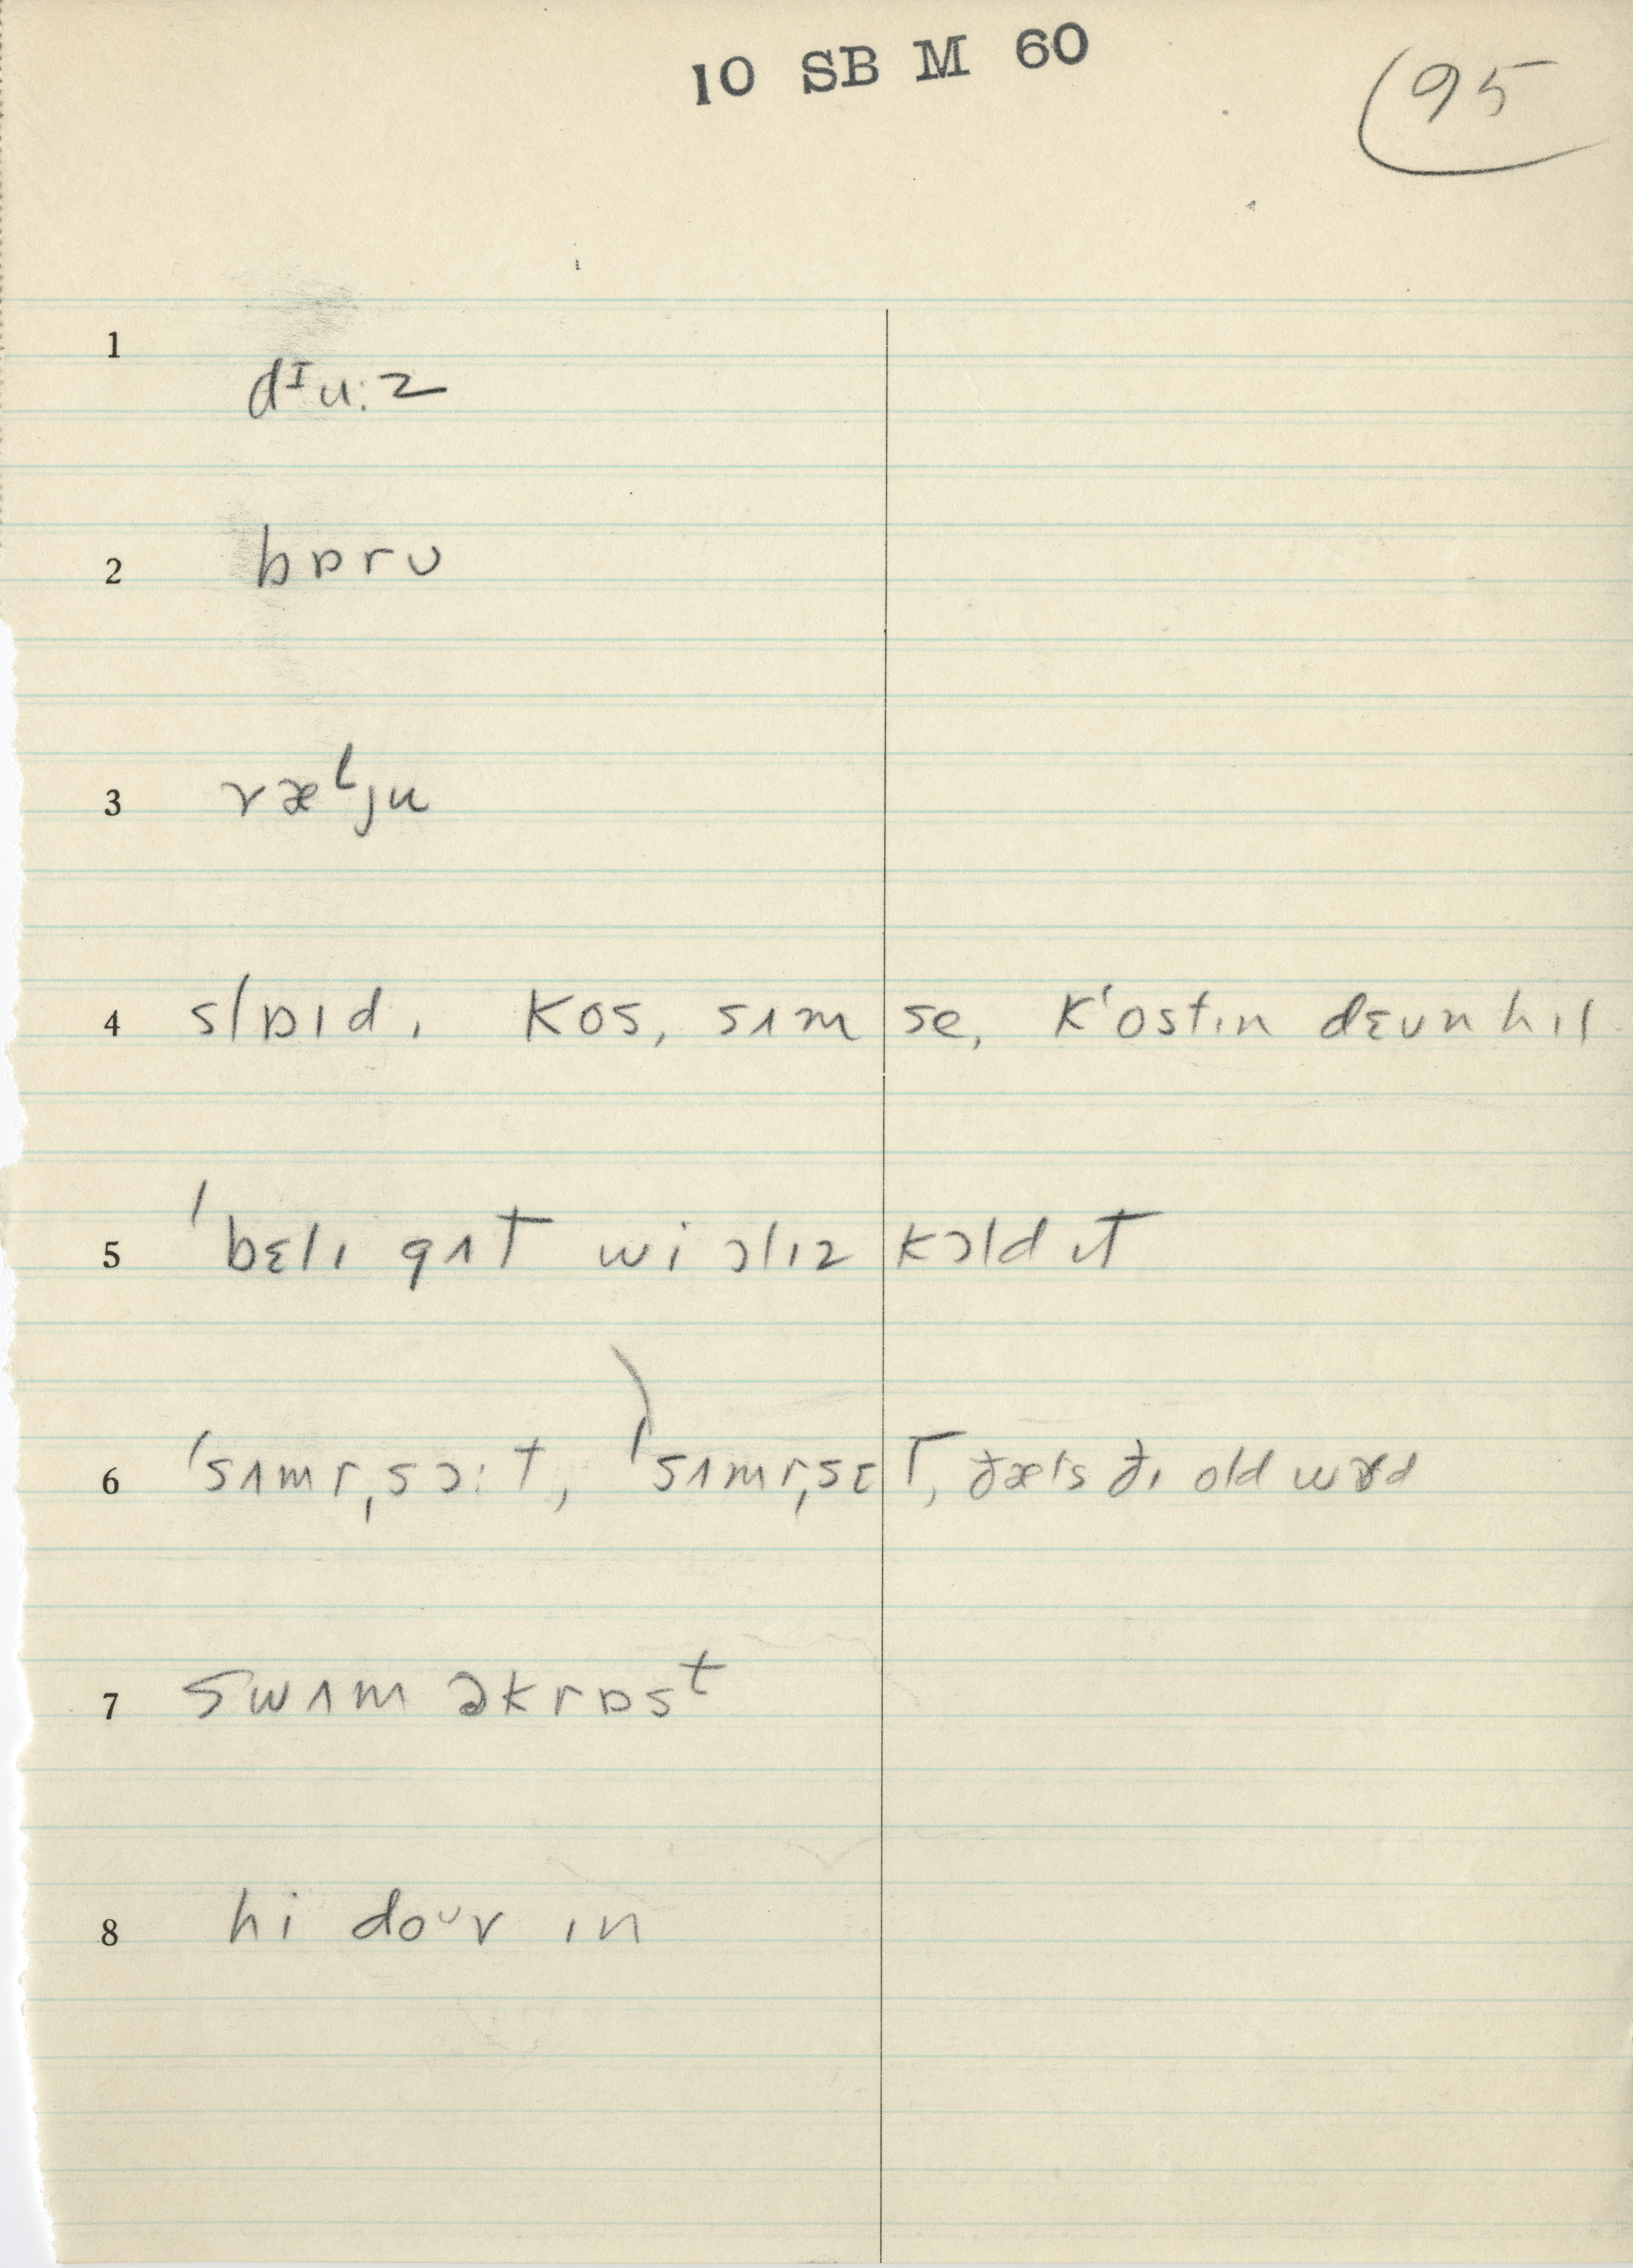 10 SB M 60
95
1
dᴵu:z
2
bɒrʊ
3
ræˡju
4 slɒɪd, kos, sʌm se, k'ostɪn dɛʊnhɪl
5 ˈbɛlɪ gʌt wi ɔlɪz kɔld ɪt
6 ˈsʌmrˌsɔ:t, ˈsʌmrˌsɛt, ðæts ðɪ old wɝd
7 swʌm əkrɒsᵗ
8 hi doᶷv ɪn